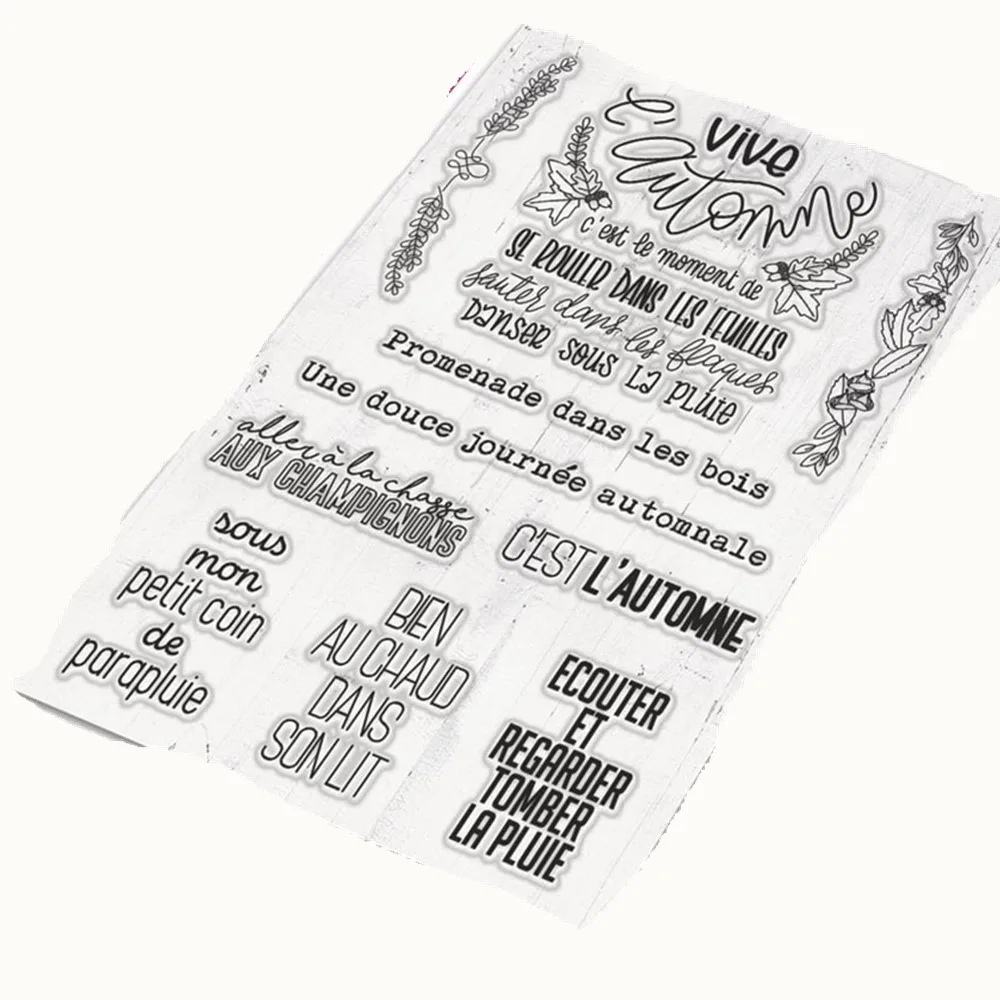 vive
l'automne
c'est le moment de
SE ROULER DANS LES FEUILLES
sauter dans les flaques
DANSER SOUS LA PLUIE
Promenade dans les bois
Une douce journée automnale
aller à la chasse
AUX CHAMPIGNONS
C'EST L'AUTOMNE
sous
mon
petit coin
de
parapluie
BIEN
AU CHAUD
DANS
SON LIT
ECOUTER
ET
REGARDER
TOMBER
LA PLUIE